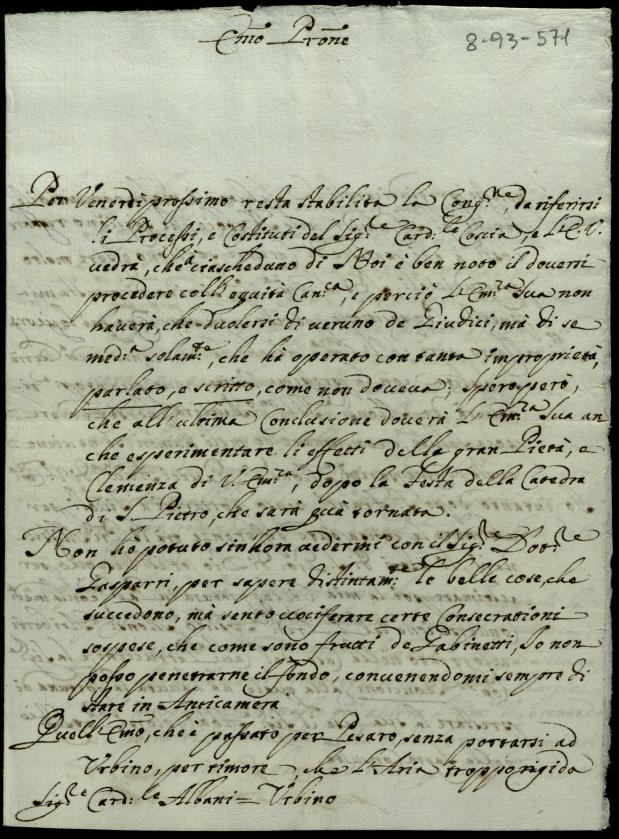 Emo Prone
8-93-571
Per Venerdi prossimo resta stabilita la Cong.ne, da riferirsi
li Processi, e Costituti del Sig.re Card.le Coscia, e V. E.
vedrà, che à ciascheduno di Noi è ben noto il doversi
procedere coll'equità Can.ca, e perciò l'Em.za Sua non
haverà, che dolersi di veruno de Giudici, mà di se
med.o solam.te, che hà operato con tanta improprietà,
parlato, e scritto, come non doveva; Spero però,
che all'ultima Conclusione doverà l'Em.za Sua an
che esperimentare li effetti della gran Pietà, e
Clemenza di V. Em.za, dopo la Festa della Catedra
di S. Pietro, che sarà quà tornata.
Non hò potuto sinhora vedermi con il Sig.re Dot.re
Gasparri, per sapere distintam.te le belle cose, che
succedono, mà sento vociferare certe Consecrationi
sospese, che come sono frutti de Gabinetti, Io non
posso penetrarne il fondo, convenendomi sempre di
stare in Anticamera
Quell'Emo, che è passato per Pesaro, senza portarsi ad
Urbino, per timore, che l'Aria troppo rigida
Sig.re Card.le Albani = Urbino